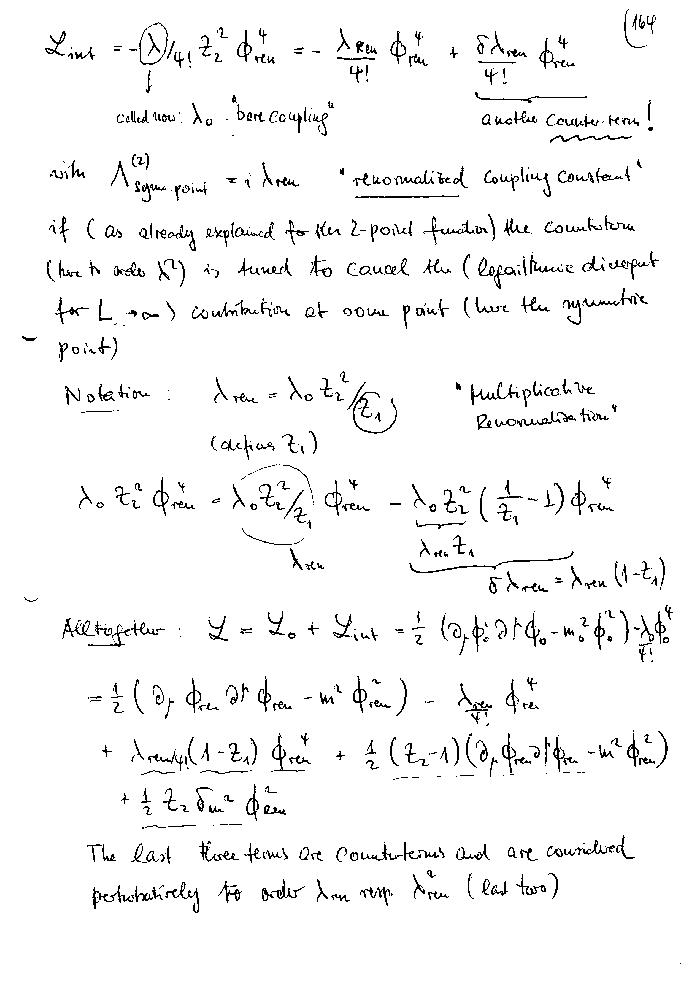 (164
L_int = -λ/4! Z_2^2 ϕ_ren^4 = - λ_ren/4! ϕ_ren^4 + δλ_ren/4! ϕ_ren^4
called now: λ_0 "bare coupling" another counter-term!
with Λ^(2)_symm. point = i λ_ren "renormalized coupling constant"
if (as already explained for the 2-point function) the counterterm
(here to order λ^2) is tuned to cancel the (logarithmic divergent
for L → ∞) contribution at some point (here the symmetric
point)
Notation : λ_ren = λ_0 Z_2^2/Z_1 "Multiplicative
Renormalisation"
(defines Z_1)
λ_0 Z_2^2 ϕ_ren^4 = λ_0 Z_2^2/Z_1 ϕ_ren^4 - λ_0 Z_2^2 (1/Z_1 - 1) ϕ_ren^4
λ_ren λ_ren Z_1
δλ_ren = λ_ren (1-Z_1)
Alltogether : L = L_0 + L_int = 1/2 (∂_μ ϕ_0 ∂^μ ϕ_0 - m_0^2 ϕ_0^2) - λ_0/4! ϕ_0^4
= 1/2 (∂_μ ϕ_ren ∂^μ ϕ_ren - m^2 ϕ_ren^2) - λ_ren/4! ϕ_ren^4
+ λ_ren/4! (1-Z_1) ϕ_ren^4 + 1/2 (Z_2-1)(∂_μ ϕ_ren ∂^μ ϕ_ren - m^2 ϕ_ren^2)
+ 1/2 Z_2 δm^2 ϕ_ren^2
The last three terms are counterterms and are considered
perturbatively to order λ_ren resp. λ_ren^2 (last two)